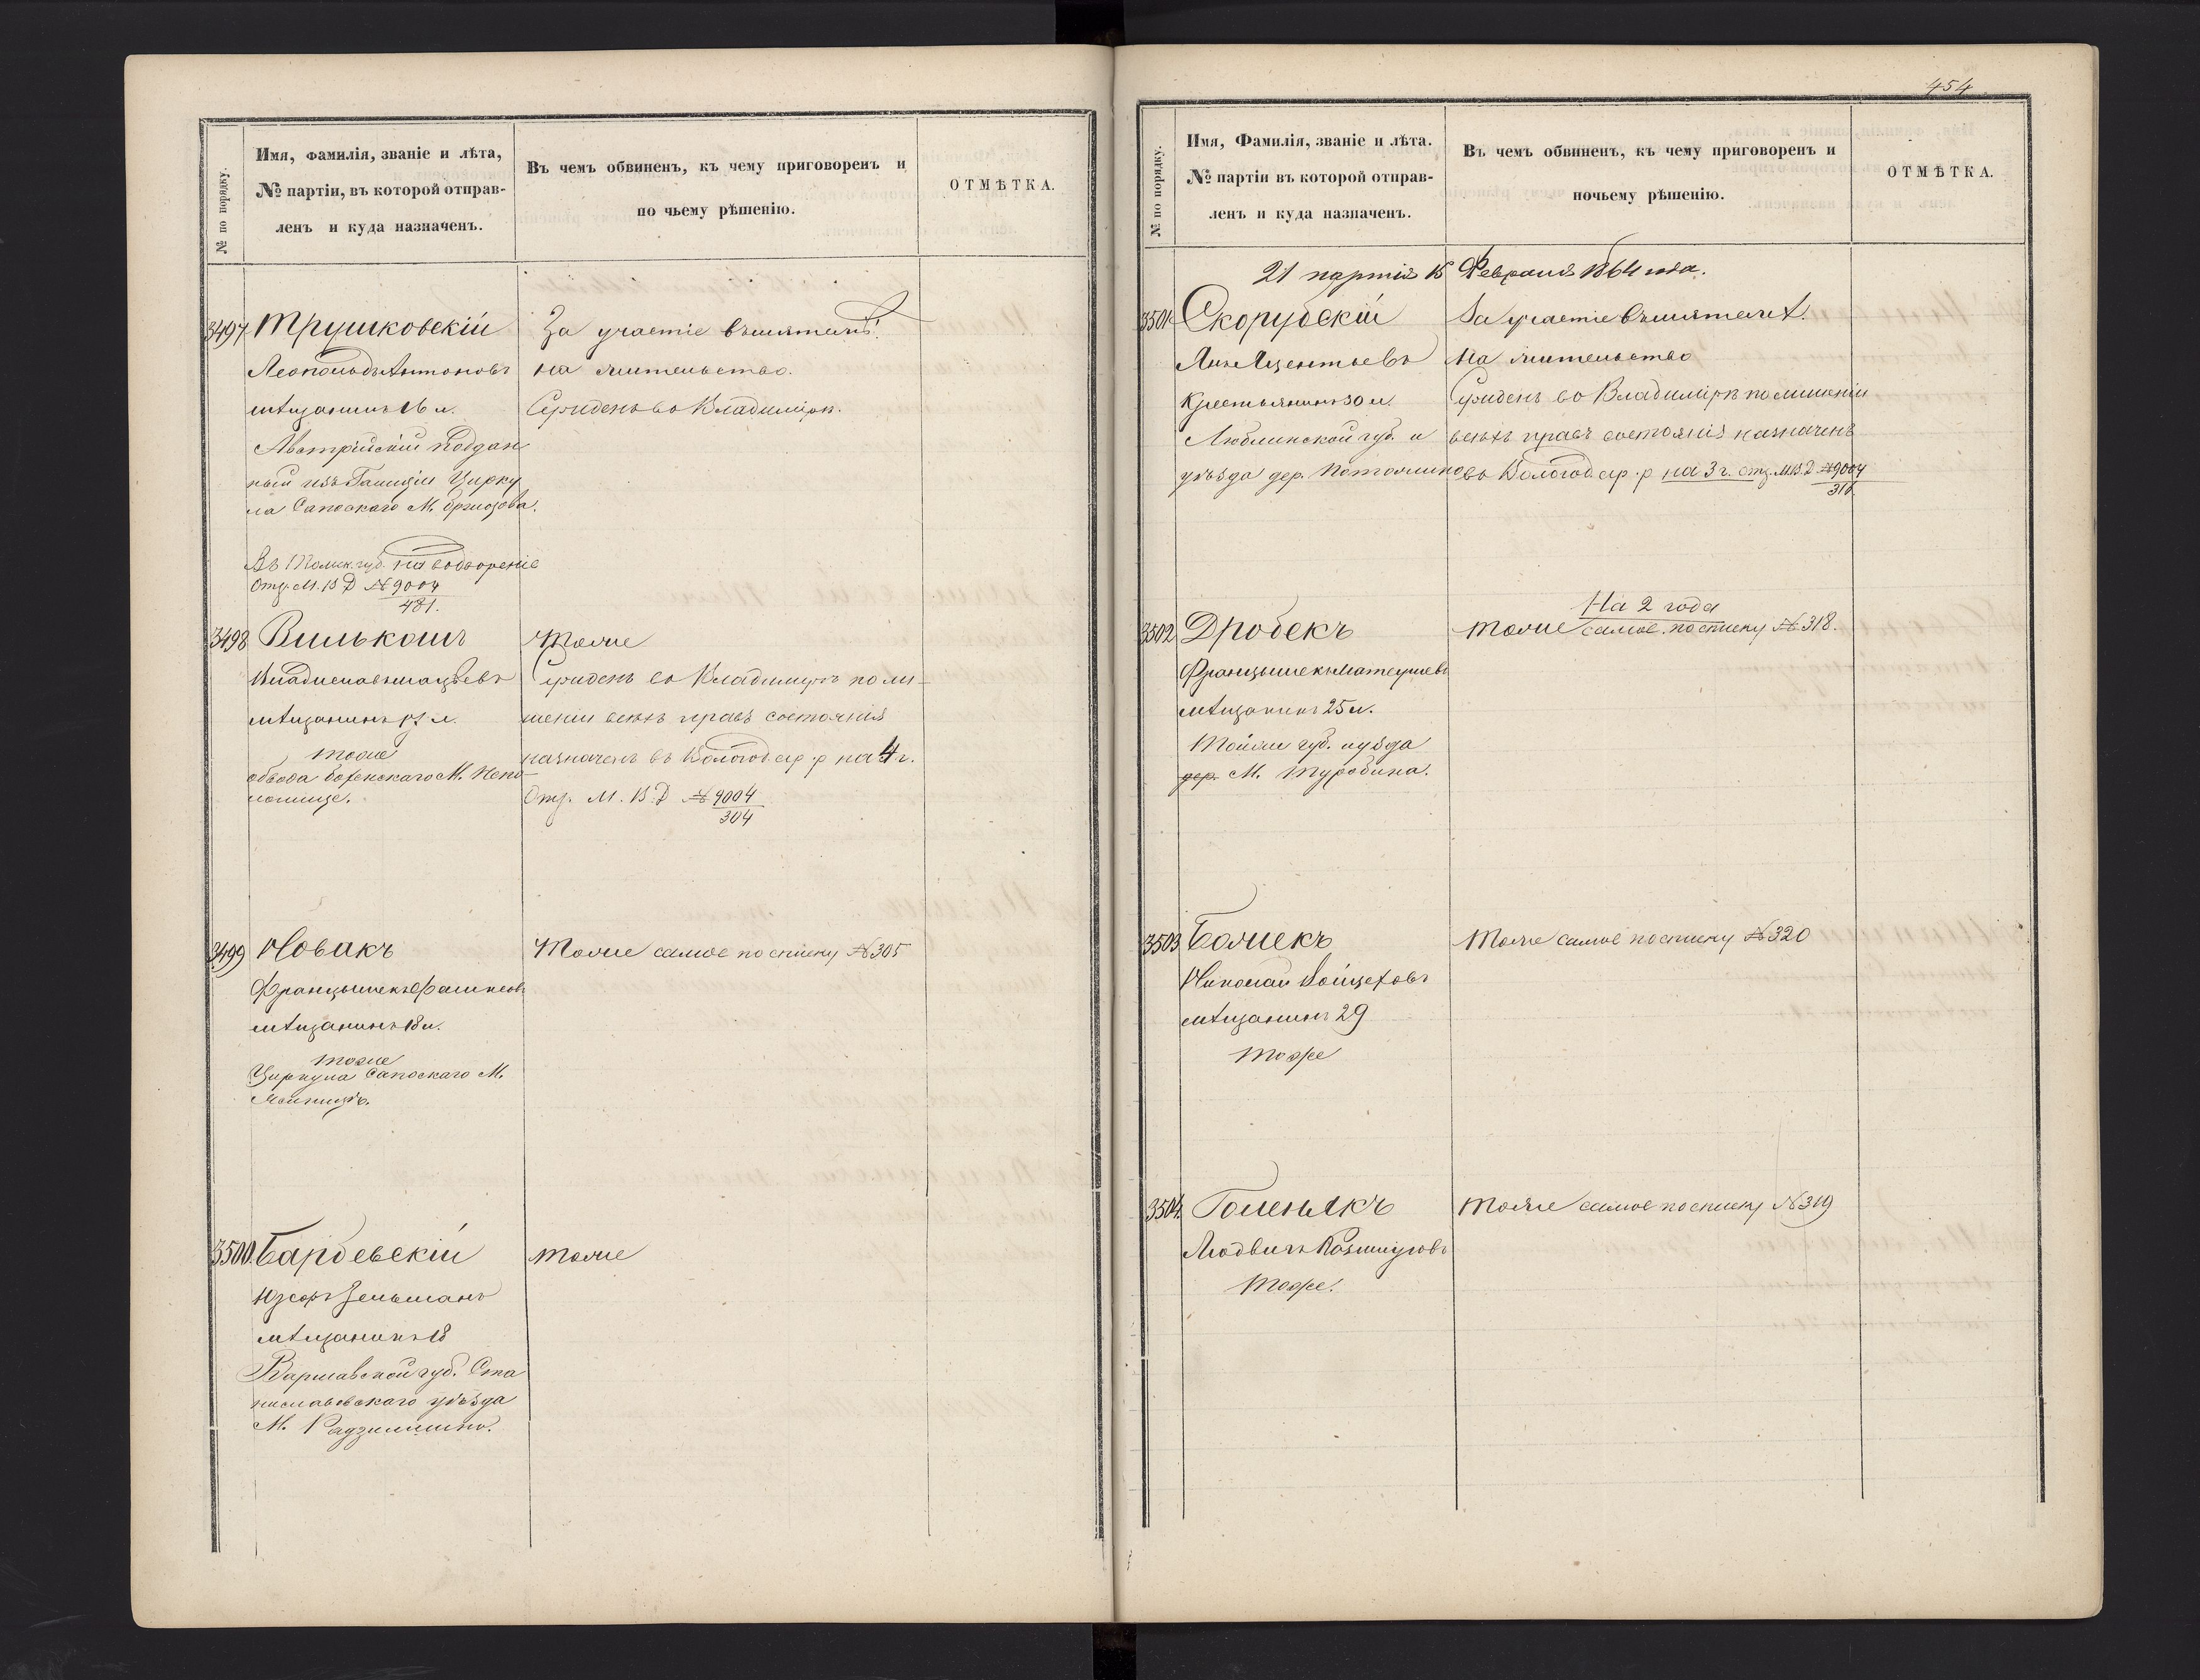 № по порядку.
Имя, фамилія, званіе и лѣта,
№ партіи, въ которой отправ-
ленъ и куда назначенъ.
Въ чемъ обвиненъ, къ чему приговоренъ и
по чьему рѣшенію.
ОТМѢТКА.
3497
Трушковскій
Леопольдъ Антоновъ
мѣщанинъ 26 л.
Австрійскій поддан
ный изъ Галиціи Цирку
ла Саноскаго М.
Въ Томск. губ. на водвореніе
Отд. М. В Д №9004
481.
За участіе въ мятежѣ.
на жительство.
Сужденъ во Владимірѣ.
3498
Вилькошъ
Владиславъ
мѣщанинъ л.
тоже
обвода Бохенскаго М. Непо
ломице.
Тоже
Сужденъ во Владимірѣ по ли-
шеніи всѣхъ правъ состоянія
назначенъ въ Вологод. ар. р на 4 г.
Отд. М. В. Д №9004
304
3499
Новакъ
Францышекъ
мѣщанинъ 18 л.
тоже
Циркула Саноскаго М.
Тоже самое по списку №305
3500
Бардевскій
Юзефъ
мѣщанинъ 18
Варшавской губ. Ста
ниславовскаго уѣзда
М. Радзимино.
тоже
454
№ по порядку.
Имя, Фамилія, званіе и лѣта.
№ партіи въ которой отправ-
ленъ и куда назначенъ.
Въ чемъ обвиненъ, къ чему приговоренъ и
почьему рѣшенію.
ОТМѢТКА.
21 партія 15 Февраля 1864 года.
3501
Скорубскій
Янъ
Крестьянинъ 30 л.
Люблинской губ. и
уѣзда дер.
За участіе въ мятежѣ.
На жительство
Сужденъ во Владимірѣ по лишеніи
всѣхъ правъ состоянія назначенъ
въ Вологод. ар. р на 3 г. отд. М.В.Д №9004
316
3502
Дробекъ
Францышекъ Матеушевъ
мѣщанинъ 25 л.
Тойже губ. и уѣзда
дер. М. Туробина.
На 2 года
тоже самое по списку №318.
3503
Божекъ
Николай Войцеховъ
мѣщанинъ 29
тоже
Тоже самое по списку №320
3504.
Голенякъ
Людвигъ Казимировъ
тоже.
тоже самое по списку №319